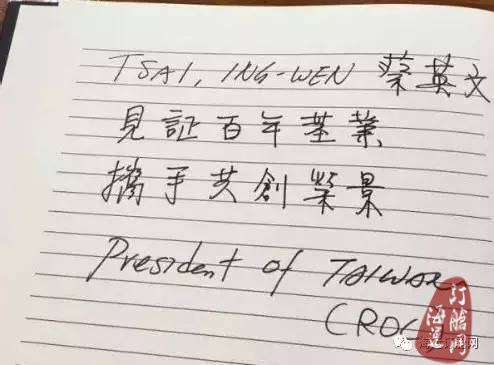 TSAI, ING-WEN 蔡英文
見証百年基業
攜手共創榮景
President of TAIWAN
(ROC
订舱网
海运